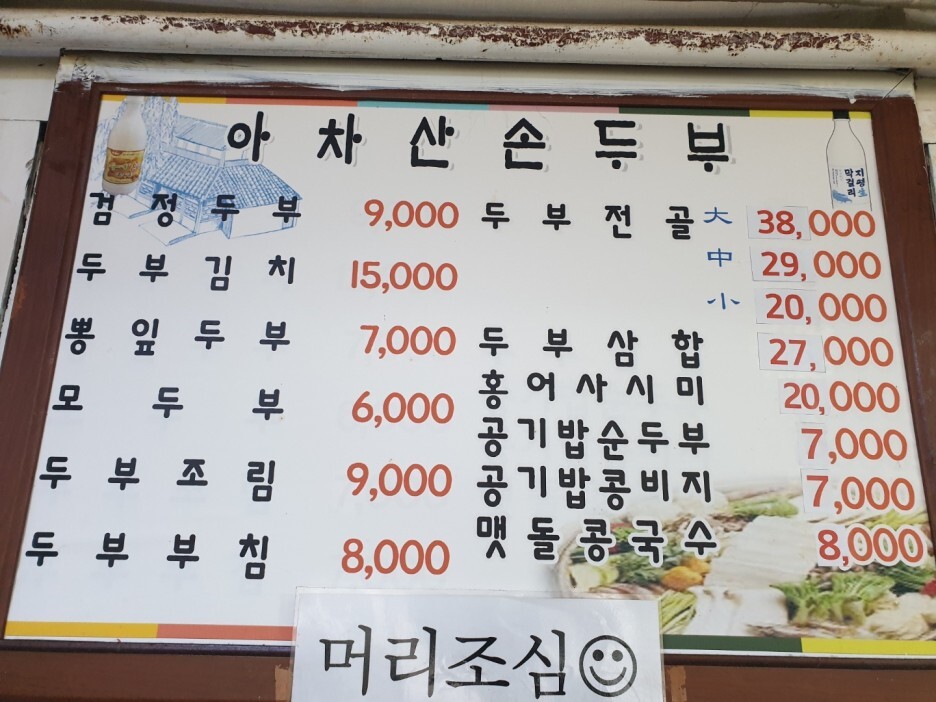 아차산손두부
검정두부 9,000
두부김치 15,000
뽕잎두부 7,000
모두부 6,000
두부조림 9,000
두부부침 8,000
두부전골 大 38,000
中 29,000
小 20,000
두부삼합 27,000
홍어사시미 20,000
공기밥순두부 7,000
공기밥콩비지 7,000
맷돌콩국수 8,000
지평生
막걸리
머리조심